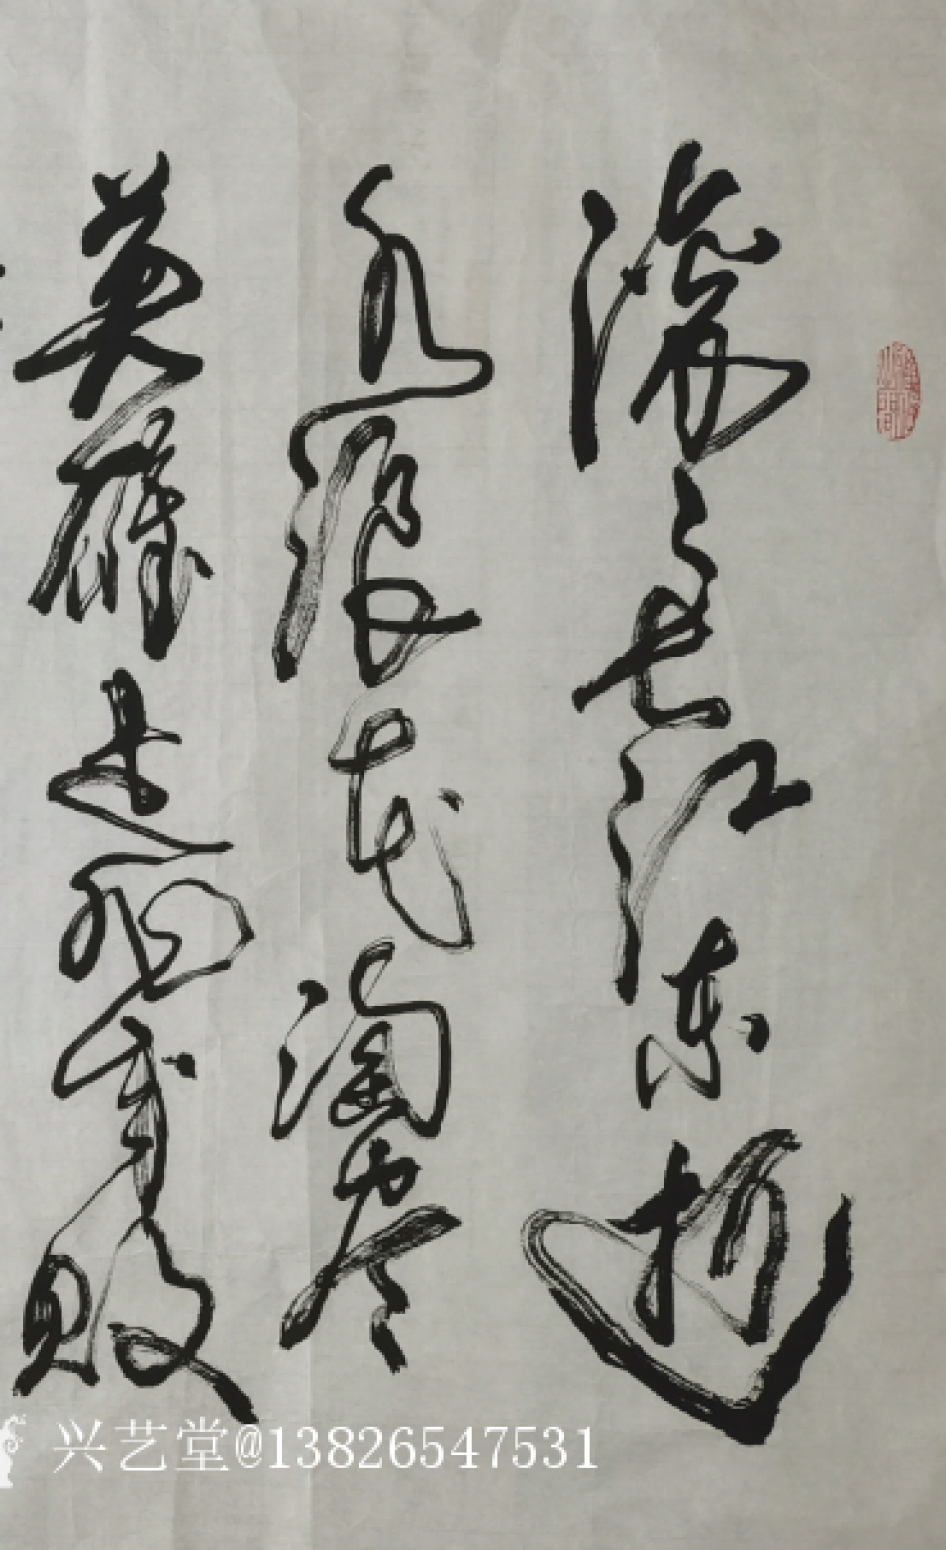 滚〻长江东逝
水浪花淘尽
英雄是非成败
兴艺堂@13826547531